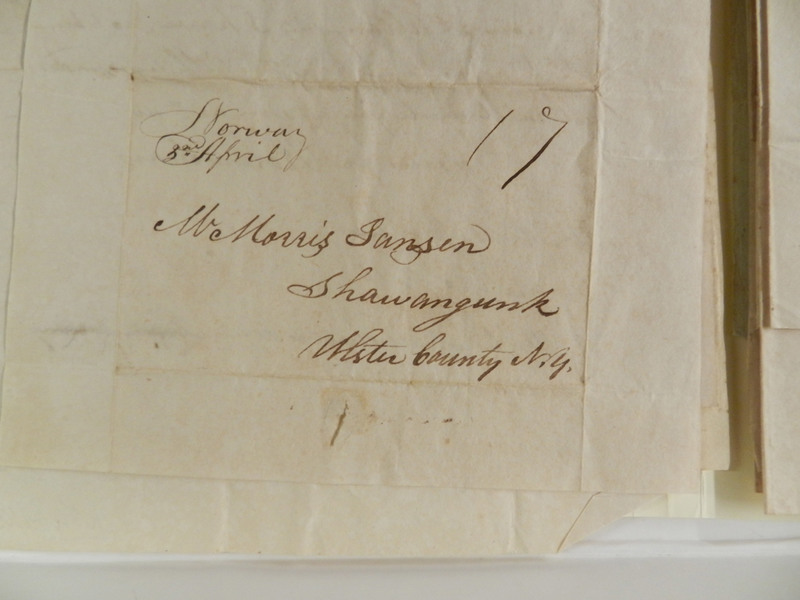 Norway
3rd April
17
Mr Morris Jansen
Shawangunk
Ulster County N.Y.